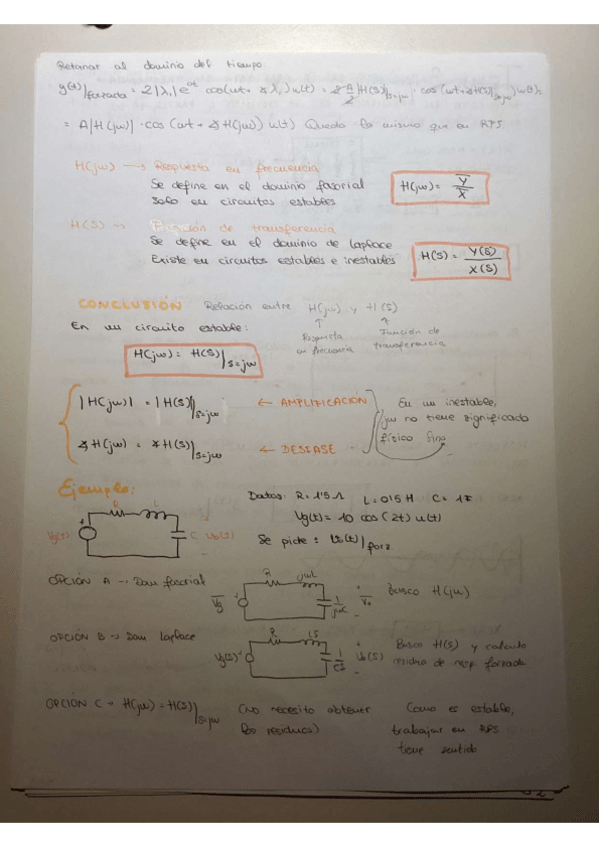 Retornar al dominio del tiempo:
y(t)|forzada = 2|λ₁|e^σt cos(ωt + ∡λ₁) u(t) = 2 A/2 |H(S)|s=jω · cos(ωt + ∡H(S)|s=jω) u(t) =
= A|H(jω)| · cos(ωt + ∡H(jω)) u(t) Queda lo mismo que en RPS.
H(jω) → Respuesta en frecuencia
Se define en el dominio fasorial
Solo en circuitos estables
H(jω) = Y/X
H(S) → Función de transferencia
Se define en el dominio de Laplace
Existe en circuitos estables e inestables
H(S) = Y(S)/X(S)
CONCLUSIÓN Relación entre H(jω) y H(S)
En un circuito estable:
Respuesta en frecuencia
Función de transferencia
H(jω) = H(S)|s=jω
|H(jω)| = |H(S)|s=jω ← AMPLIFICACIÓN
∡H(jω) = ∡H(S)|s=jω ← DESFASE
En un inestable,
jω no tiene significado
físico
Ejemplo:
Datos: R = 1'5 Ω L = 0'5 H C = 1F
Vg(t) = 10 cos(2t) u(t)
Se pide: Vo(t)|forz
R L
Vg(t) C Vo(t)
OPCIÓN A → Dom fasorial
R jωL
Vg 1/jωC Vo
Busco H(jω)
OPCIÓN B → Dom Laplace
R LS
Vg(S) 1/CS Vo(S)
Busco H(S) y calculo
residuo de resp. forzada
OPCIÓN C → H(jω) = H(S)|s=jω
(No necesito obtener
los residuos)
Como es estable,
trabajar en RPS
tiene sentido